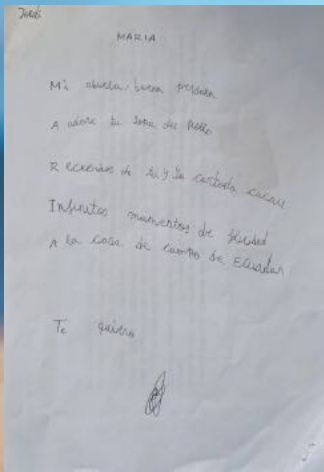 MARIA
Mi abuela, buena persona
A adore tu sopa de pollo
Recuerdos de tu y la cascada
Infinitos momentos de felicidad
A la casa de campo de Ecuador
Te quiero